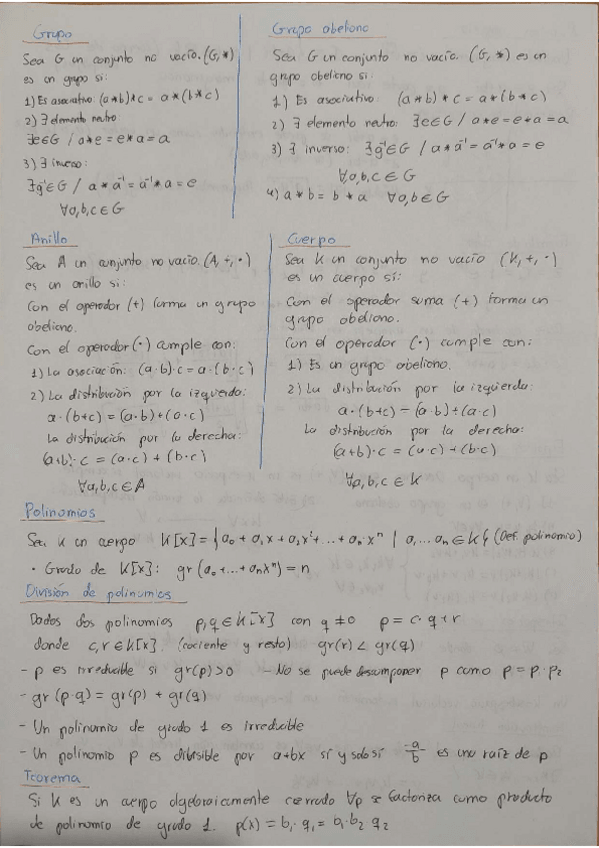 Grupo
Sea G un conjunto no vacío. (G,*)
es un grupo si:
1) Es asociativo: (a*b)*c = a*(b*c)
2) ∃ elemento neutro
∃e∈G / a*e = e*a = a
3) ∃ inverso:
∃g⁻¹∈G / a*a⁻¹ = a⁻¹*a = e
∀a,b,c∈G
Grupo abeliano
Sea G un conjunto no vacío. (G,*) es un
grupo abeliano si:
1) Es asociativo: (a*b)*c = a*(b*c)
2) ∃ elemento neutro: ∃e∈G / a*e = e*a = a
3) ∃ inverso: ∃g⁻¹∈G / a*a⁻¹ = a⁻¹*a = e
∀a,b,c∈G
4) a*b = b*a ∀a,b∈G
Anillo
Sea A un conjunto no vacío. (A,+,·)
es un anillo si:
Con el operador (+) forma un grupo
abeliano.
Con el operador (·) cumple con:
1) La asociación: (a·b)·c = a·(b·c)
2) La distribución por la izquierda:
a·(b+c) = (a·b)+(a·c)
La distribución por la derecha:
(a+b)·c = (a·c)+(b·c)
∀a,b,c∈A
Cuerpo
Sea K un conjunto no vacío (K,+,·)
es un cuerpo sí:
Con el operador suma (+) forma un
grupo abeliano.
Con el operador (·) cumple con:
1) Es un grupo abeliano.
2) La distribución por la izquierda:
a·(b+c) = (a·b)+(a·c)
La distribución por la derecha:
(a+b)·c = (a·c)+(b·c)
∀a,b,c∈K
Polinomios
Sea K un cuerpo K[x] = {a₀+a₁x+a₂x²+...+aₙ·xⁿ | a,...aₙ∈K} (Def. polinomio)
· Grado de K[x]: gr(a₀+...+aₙxⁿ) = n
División de polinomios
Dados dos polinomios p,q∈K[x] con q≠0 p = c·q+r
donde c,r∈K[x]. (cociente y resto) gr(r) < gr(q)
- p es irreducible si gr(p)>0 - No se puede descomponer p como p = p₁·p₂
- gr(p·q) = gr(p) + gr(q)
- Un polinomio de grado 1 es irreducible
- Un polinomio p es dibisible por a+bx sí y solo sí -a/b es una raíz de p
Teorema
Si K es un cuerpo algebraicamente cerrado ∀p se factoriza como producto
de polinomio de grado 1. p(x) = b₁·q₁ = b₁·b₂·q₂